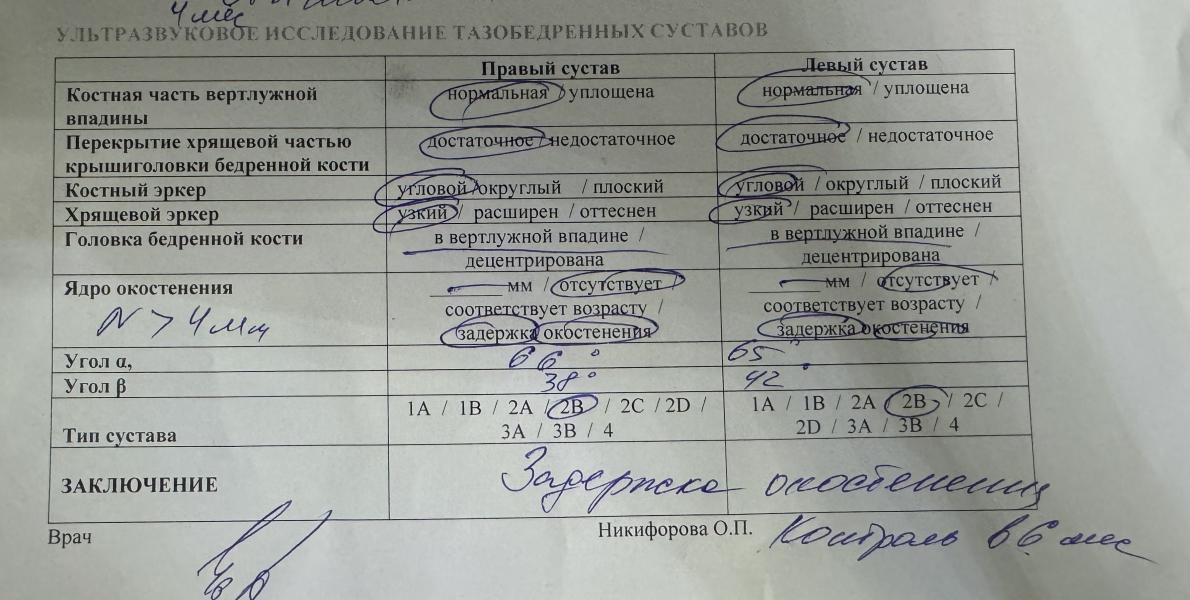 4 мес
УЛЬТРАЗВУКОВОЕ ИССЛЕДОВАНИЕ ТАЗОБЕДРЕННЫХ СУСТАВОВ
Правый сустав Левый сустав
Костная часть вертлужной впадины нормальная / уплощена нормальная / уплощена
Перекрытие хрящевой частью крышиголовки бедренной кости достаточное / недостаточное достаточное / недостаточное
Костный эркер угловой /округлый / плоский угловой / округлый / плоский
Хрящевой эркер узкий / расширен / оттеснен узкий / расширен / оттеснен
Головка бедренной кости в вертлужной впадине / децентрирована в вертлужной впадине / децентрирована
Ядро окостенения N > 4 мм — мм / отсутствует / соответствует возрасту / задержка окостенения — мм / отсутствует / соответствует возрасту / задержка окостенения
Угол α, 66° 65°
Угол β 38° 42°
Тип сустава 1A / 1B / 2A / 2B / 2C / 2D / 3A / 3B / 4 1A / 1B / 2A / 2B / 2C / 2D / 3A / 3B / 4
ЗАКЛЮЧЕНИЕ Задержка окостенения
Врач Никифорова О.П. Контроль в 6 мес